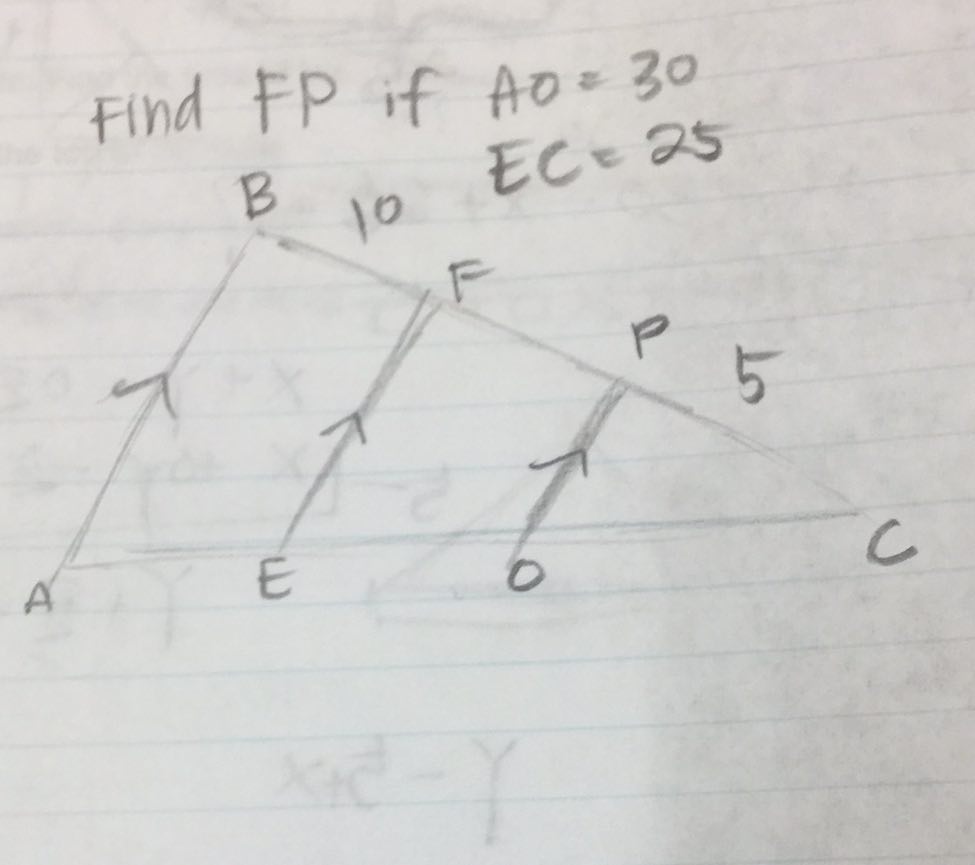 Find FP if AO = 30
EC = 25
B 10
F
P 5
A E O C